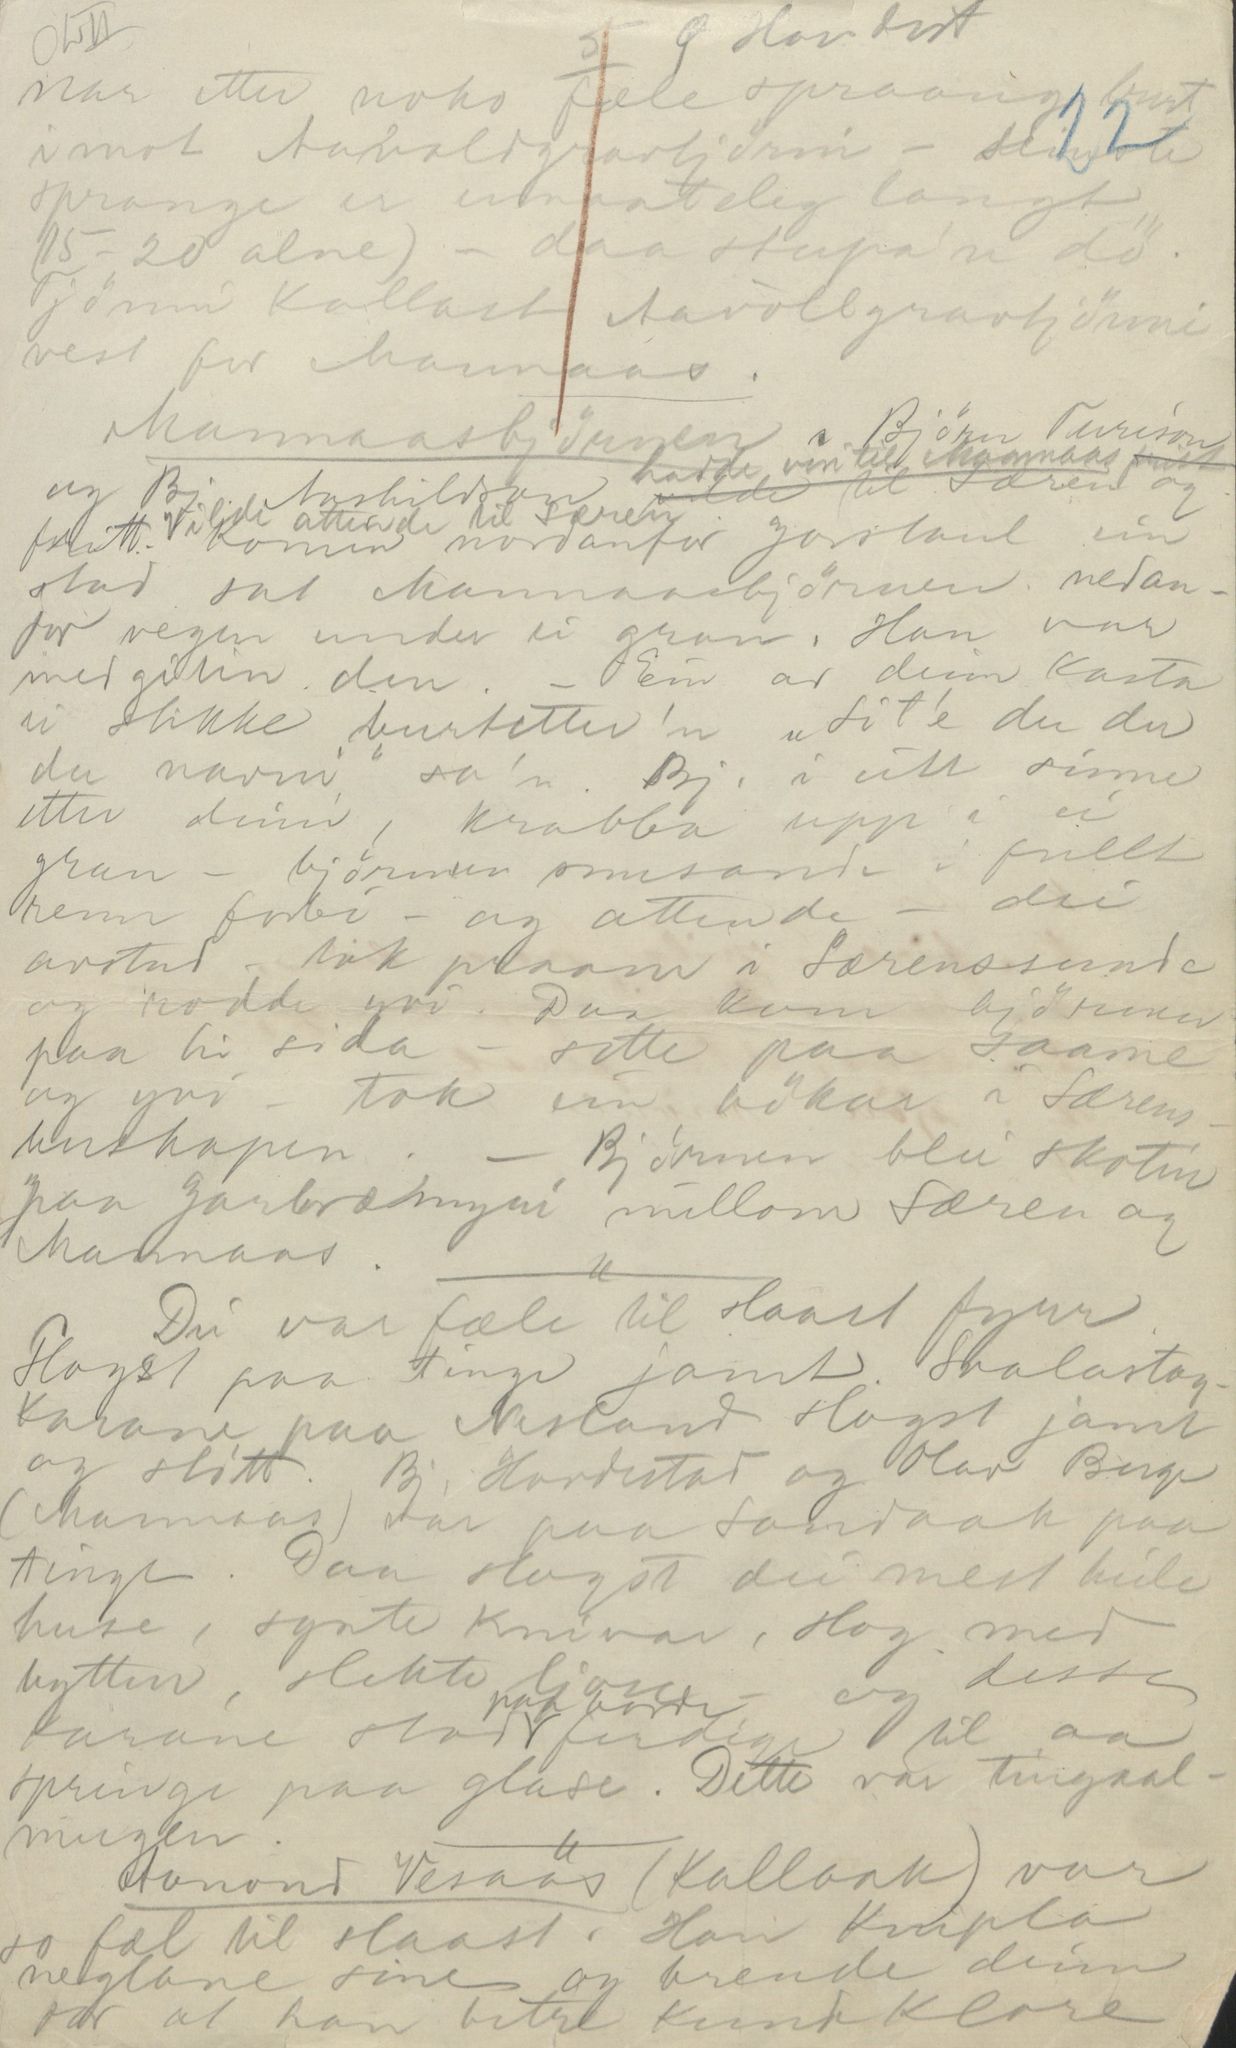 5 9 Hardest
nar etter noko fæle spraang burt
22
imot Aavoldgravtjörni - seinste
sprange er umaateleg langt
(15-20 alne) - daa stupa'n dö.
Tjönni kallast Aavollgravtjönni
vest for Mannaas.
Mannaasbjörnen. Björn Turison
hadde vori til Mannaas frist
og Bj. Aashildson vilde til Særen og
Vilde attende til Særen
fritt. Komen nordanfor Jorstaul ein
stad sat Mannaasbjörnen nedan-
for vegen under ei gran. Han var
medgilin den. - Ein av deim kasta
ei stikke burtetter'n "Sit'e du der
du navni" sa'n. Bj. i eitt sinne
etter deim, krabba upp i ei
gran - björnen snusande i fullt
renn forbi - og attende - dei
avstad - tok praam i Særenssunde
og rodde yvi. Daa kom björnen
paa hi sida - sette paa saame
og yvi - tok ein bökar i Særens-
buskapen. - Björnen blei skotin
paa Jarbrædmyri millom Særen og
Mannaas.
Dei var fæle til slaast fyrr.
Slogst paa tinge jamt. Svalastog-
karane paa Nesland slogst jamt
og slitt. Bj. Hardestad og Olav Berge
(Mannaas) var paa Sandaak paa
tinge. Daa slogst dei mest heile
huse, synte knivar, slog med
bytten, slekte ljose - og desse
paa borde
karane stod ferdige til aa
springe paa glase. Dette var tingaal-
mugen.
Aanond Vesaas (Kallaak) var
so fæl til slaast. Han knipla
neglane sine og brende deim
for at han betre kunde klore